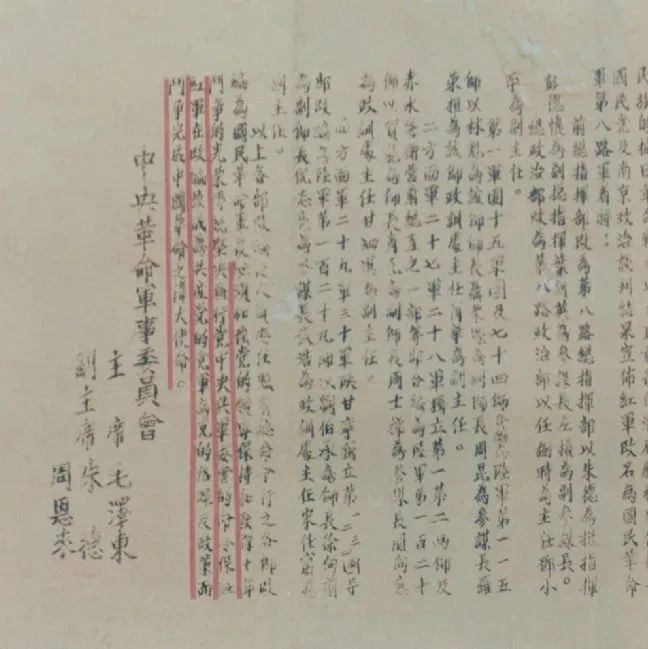 民族的抗日
國民党及南京政治談判結果宣佈紅軍改名為國民革命
軍第八路軍有將：
前總指揮部改為第八路總指揮部以朱德為總指揮
彭德懷為副總指揮葉劍英為參謀長左權為副參謀長。
總政治部改為第八路政治部以任弼時為主任鄧小
平為副主任。
第一軍團十五軍團及七十四師合編為陸軍第一一五
師以林彪為該師師長聶榮臻為副師長周昆為參謀長羅
榮桓為該師政訓處主任蕭華為副主任。
二方面軍二十七軍二十八軍獨立第一第二兩師及
赤水警衛營前總直之一部等部合編為陸軍第一百二十
師以賀龍為師長蕭克為副師長周士梯為參謀長關向應
為政訓處主任甘泗淇為副主任。
四方面軍二十九軍三十軍陝甘寧獨立第一二三四等
部改編為陸軍第一百二十九師以劉伯承為師長徐向前
為副師長倪志亮為參謀長張浩為政訓處主任宋任窮為
副主任。
以上各部改編後人員委任照前總命令行之各師改
編為國民革命軍後必須加強党的領導保持和發揮十年
鬥爭的光榮傳統堅決執行党中央與軍委會的命令保証
紅軍在改編後成為共產党的党軍為党的路線及政策而
鬥爭完成中國革命之偉大使命。
中央革命軍事委員會
主席毛澤東
副主席朱德
周恩來